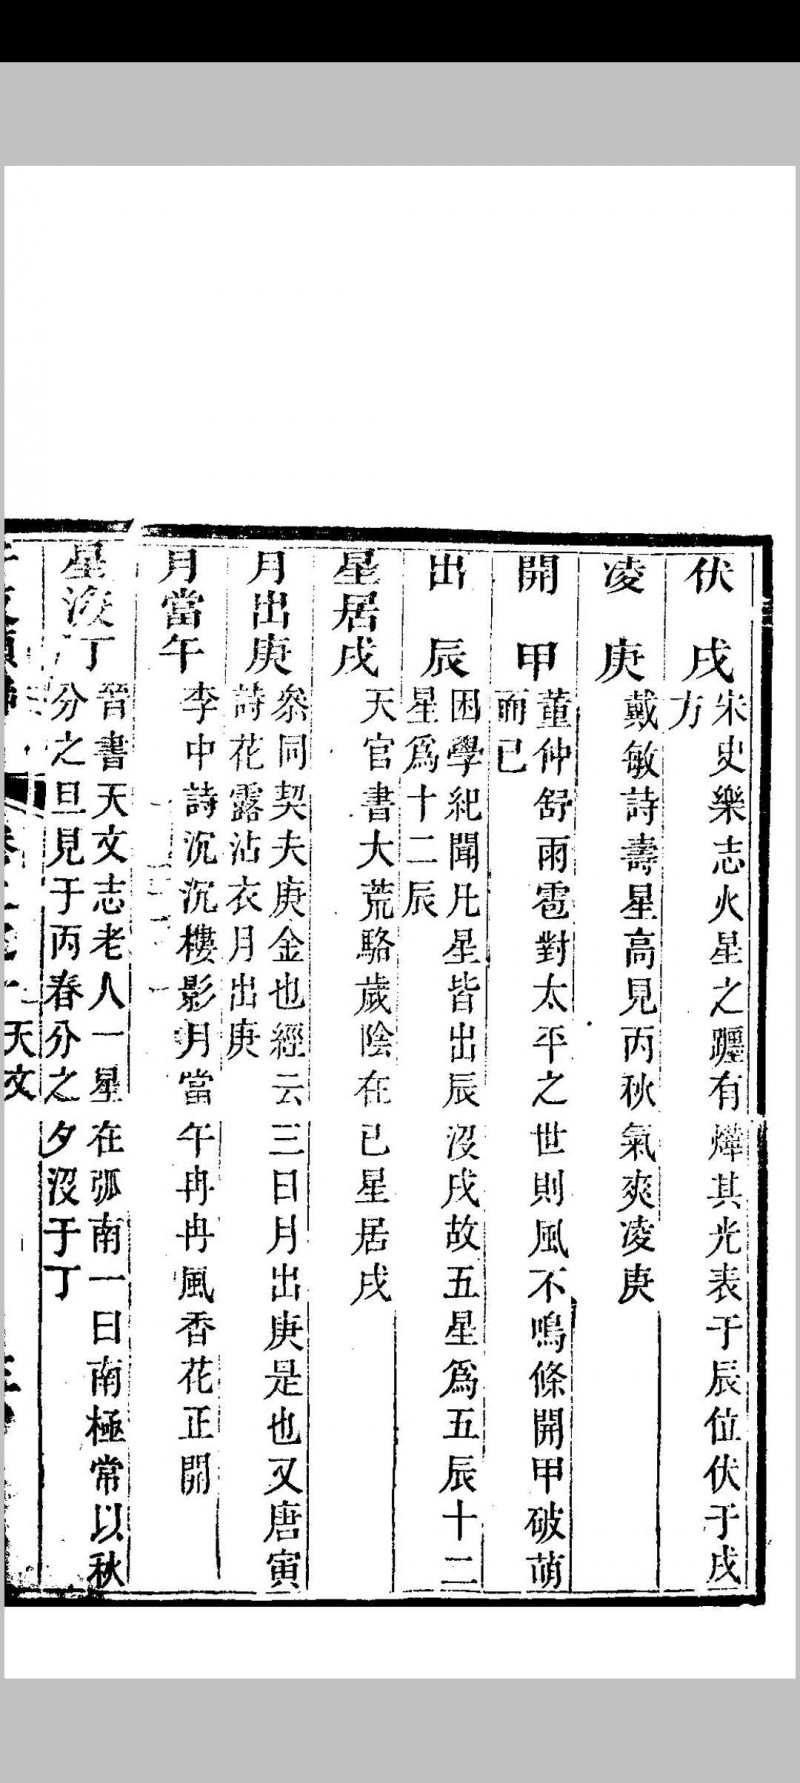 伏戌
宋史樂志火星之躔有燁其光表于辰位伏于戌
方
凌庚
戴敏詩壽星高見丙秋氣爽凌庚
開甲
董仲舒雨雹對太平之世則風不鳴條開甲破萌
而已
出辰
困學紀聞凡星皆出辰沒戌故五星為五辰十二
星為十二辰
星居戌
天官書大荒駱歲陰在巳星居戌
月出庚
叅同契夫庚金也經云三日月出庚是也又唐寅
詩花露沾衣月出庚
月當午
李中詩沉沉樓影月當午冉冉風香花正開
星沒丁
晉書天文志老人一星在弧南一曰南極常以秋
分之旦見于丙春分之夕沒于丁
天文